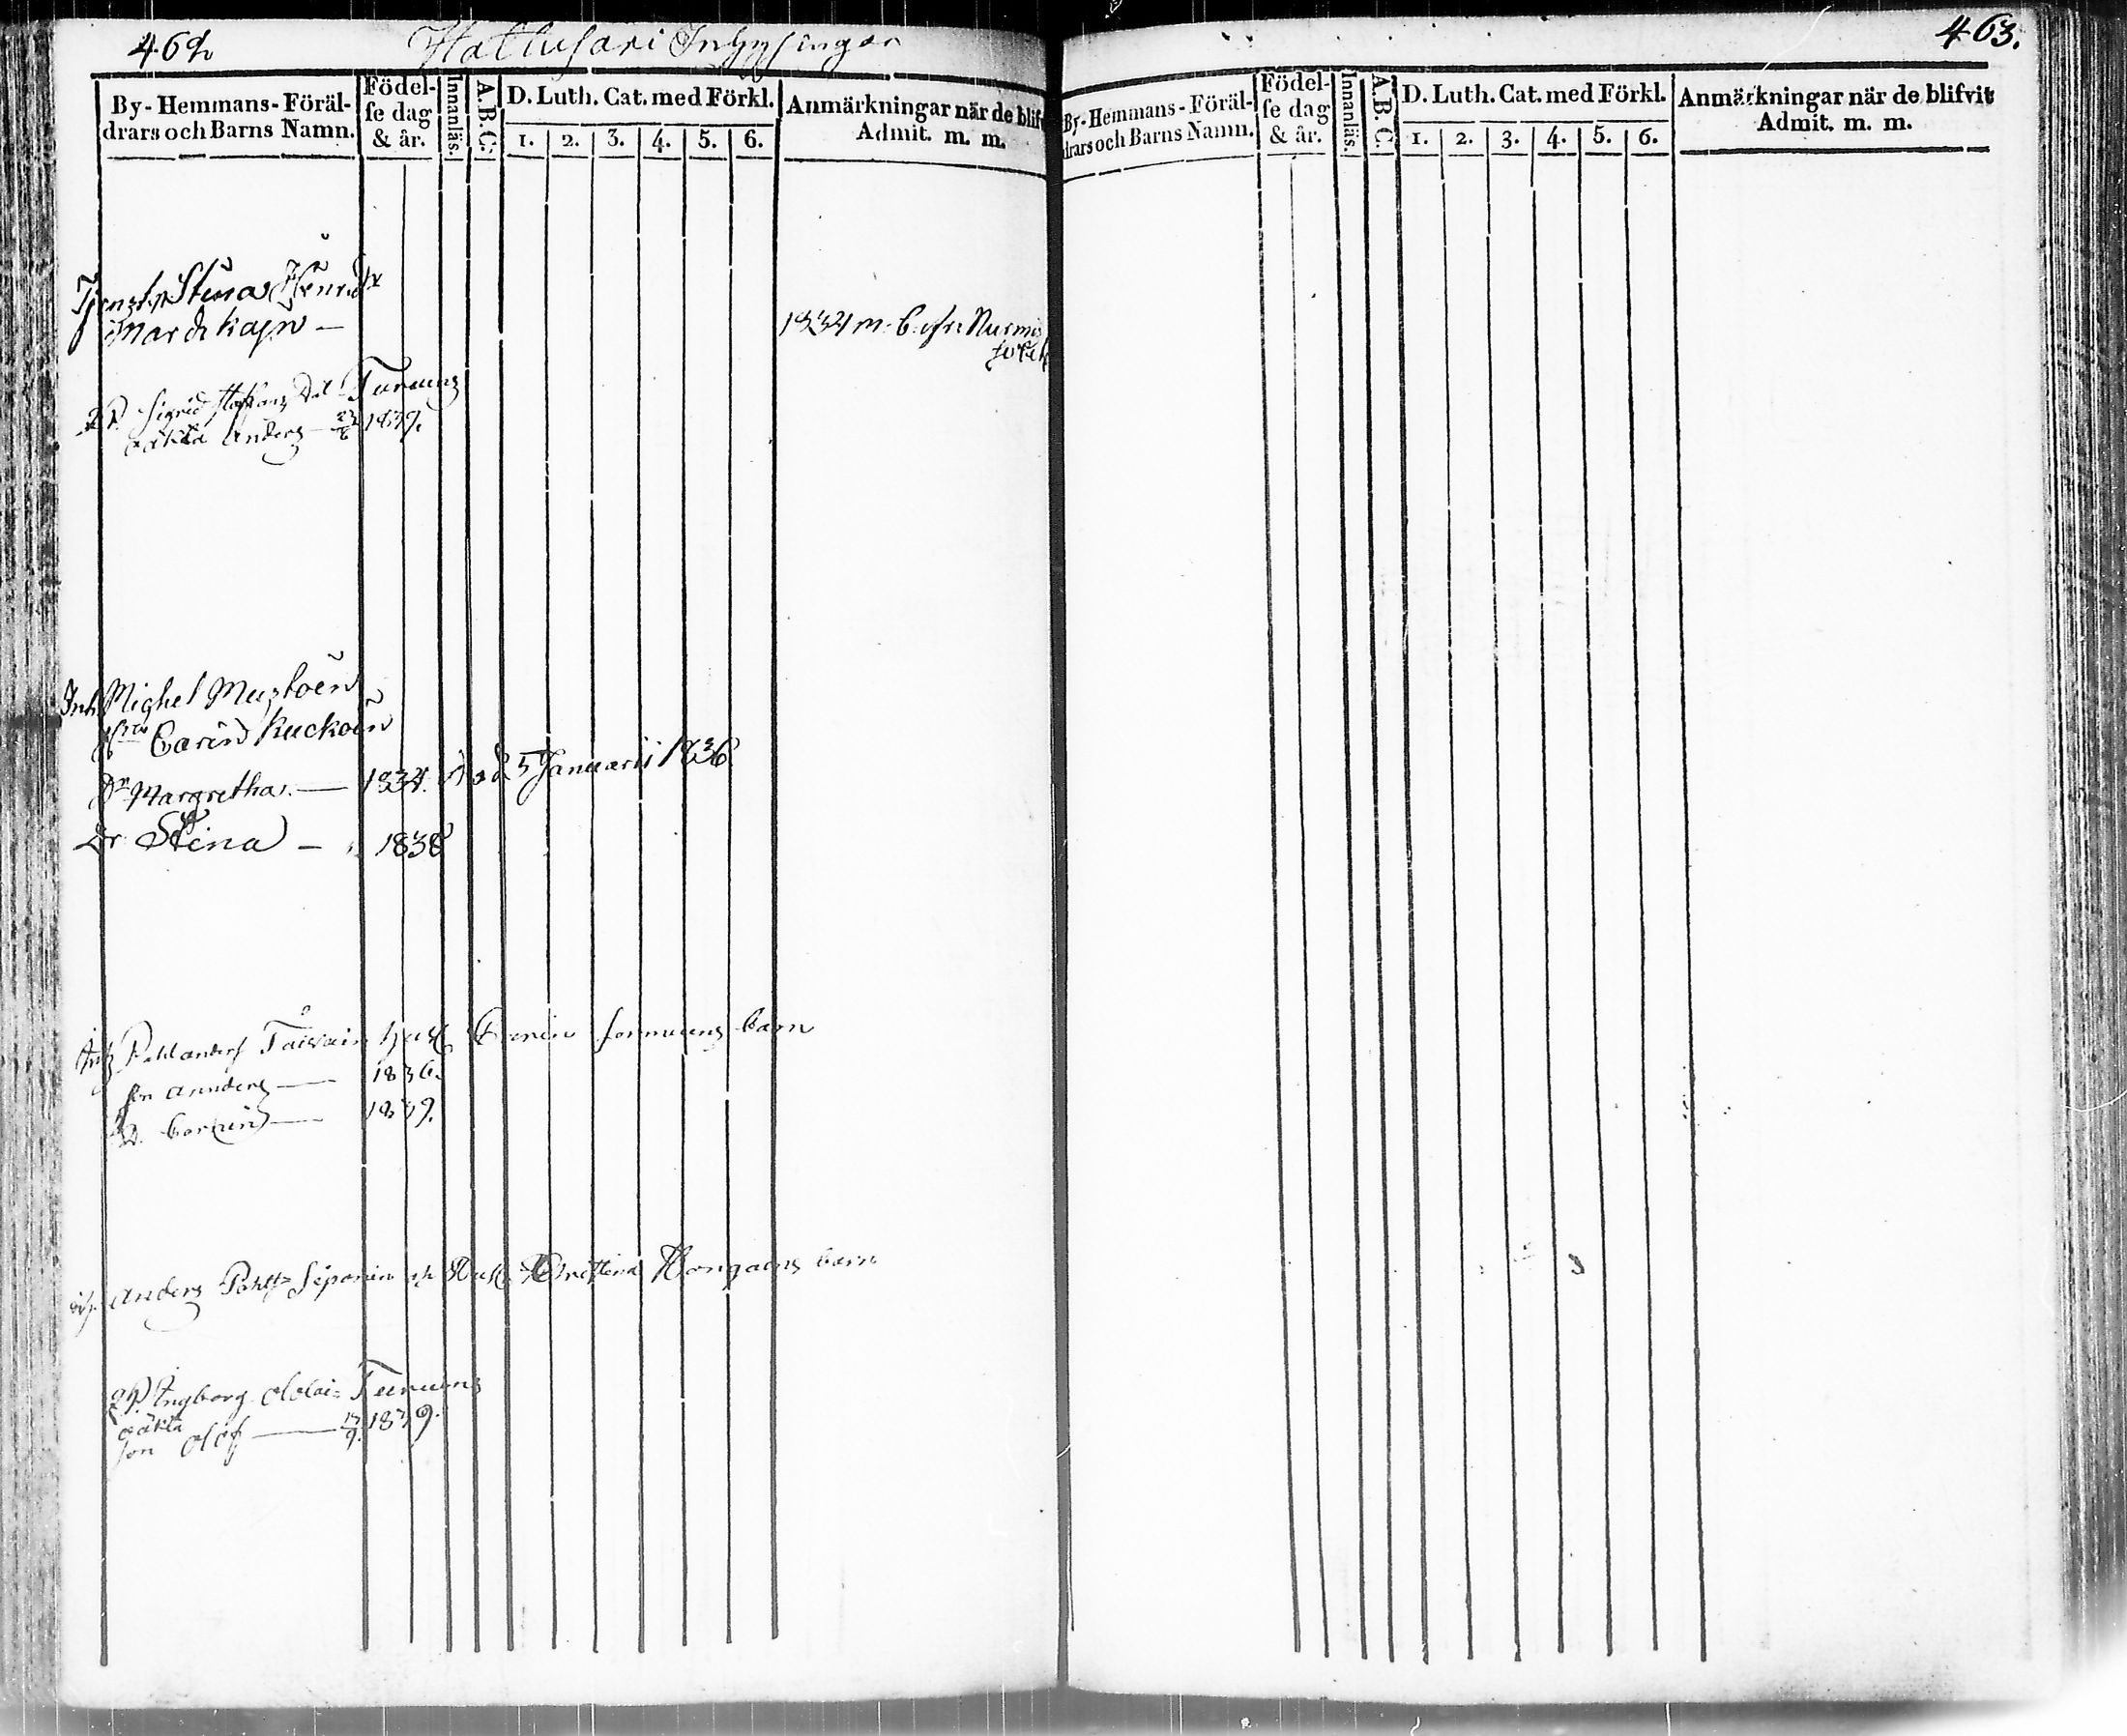 462
Hattusari Inhysingar
By-Hemmans-Föräl-
drars och Barns Namn.
Födel-
se dag
& år.
Innanläs.
A.B.C.
D. Luth. Cat. med Förkl.
1. 2. 3. 4. 5. 6.
Anmärkningar när de blif
Admit. m. m.
Stina Henrichs
Mardikajn —
1834 m. b. Nurmis
Sigrid Staffans Dtr Turuns
oäkta Anders — 1839.
Inh. Mighel Mustoin
Hstru Carin Kuckoin
Dr Margretha. — 1834. död 5 Januarii 1836.
Dr Stina — 1838
Inh Pahl Anders Taivain Hust Carin barn
son Annders — 1836.
D. Carin — 1839.
Anders Pahls Seponin Hust. Christina Kongains barn
Ingborg Ololai Turuns
oäkta
son Olof — 1839.
463.
By-Hemmans-Föräl-
drars och Barns Namn.
Födel-
se dag
& år.
Innanläs.
A.B.C.
D. Luth. Cat. med Förkl.
1. 2. 3. 4. 5. 6.
Anmärkningar när de blifvit
Admit. m. m.